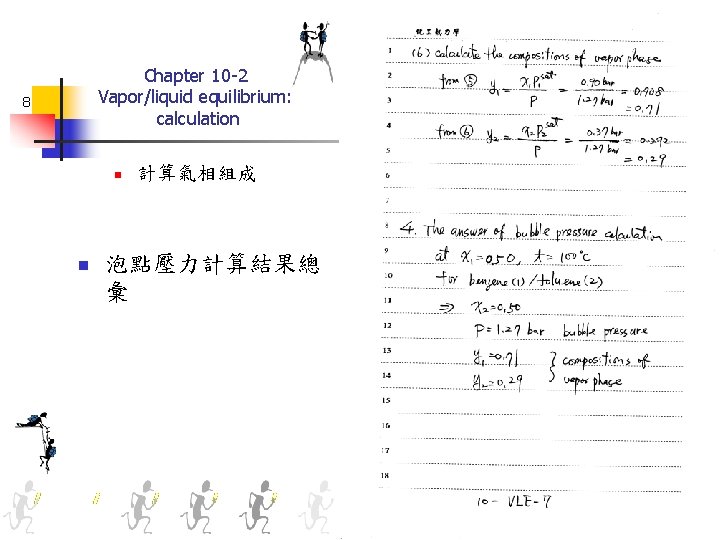 8
Chapter 10-2
Vapor/liquid equilibrium:
calculation
計算氣相組成
泡點壓力計算結果總
彙
化工熱力學
1 (6) calculate the compositions of vapor phase
2 from ⑤ y₁ = x₁P₁ˢᵃᵗ / P = 0.90 bar / 1.27 bar = 0.708
3 = 0.71
4 from ⑥ y₂ = x₂P₂ˢᵃᵗ / P = 0.37 bar / 1.27 bar = 0.292
5 = 0.29
6
7
8 4. The answer of bubble pressure calculation
9 at x₁=0.50, t=100°C
10 for benzene(1)/toluene(2)
11 ⇒ x₂=0.50
12 P=1.27 bar bubble pressure
13 y₁=0.71 } compositions of
14 y₂=0.29 vapor phase
15
16
17
18
10- VLE-7